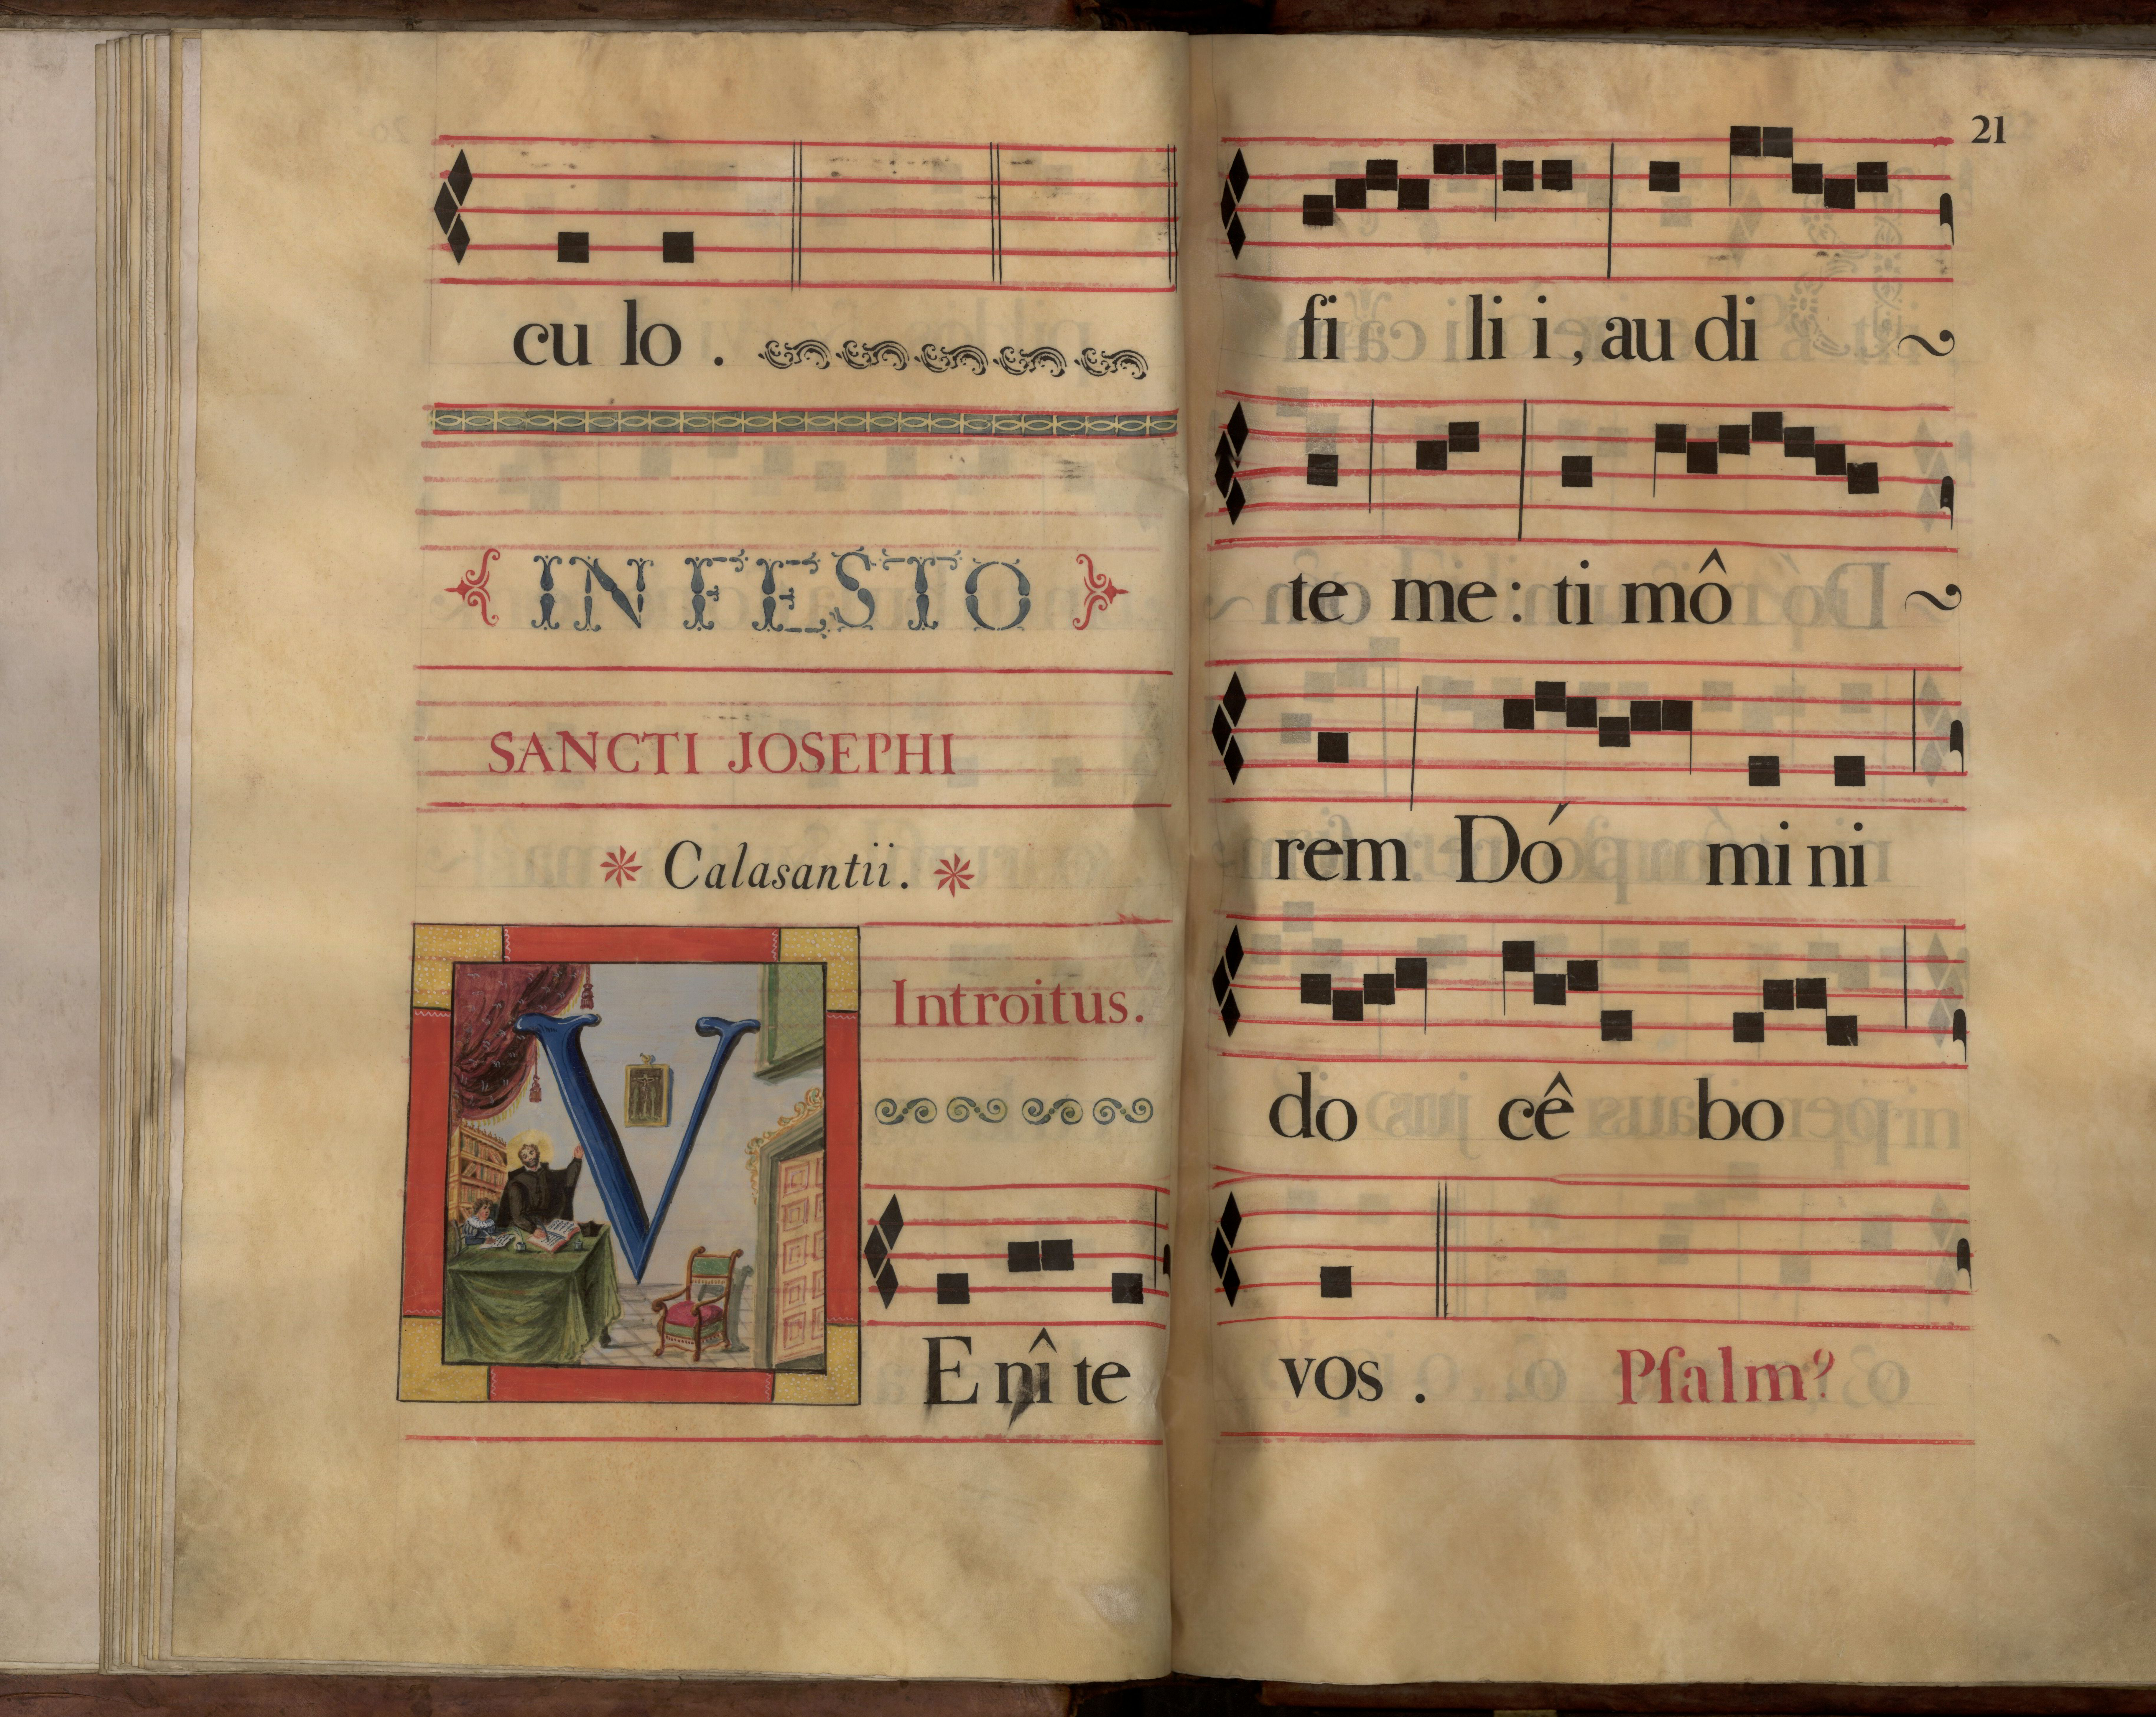 cu lo .
IN FESTO
SANCTI JOSEPHI
Calasantii.
Introitus.
V
E nî te
21
fi li i, au di
te me : ti mô
rem Dó mi ni
do cê bo
vos . Pſalm⁹